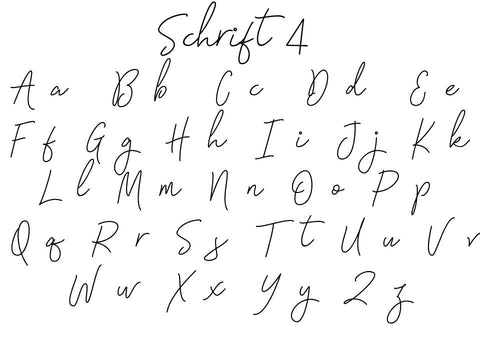 Schrift 4
A a B b C c D d E e
F f G g H h I i J j K k
L l M m N n O o P p
Q q R r S s T t U u V v
W w X x Y y Z z